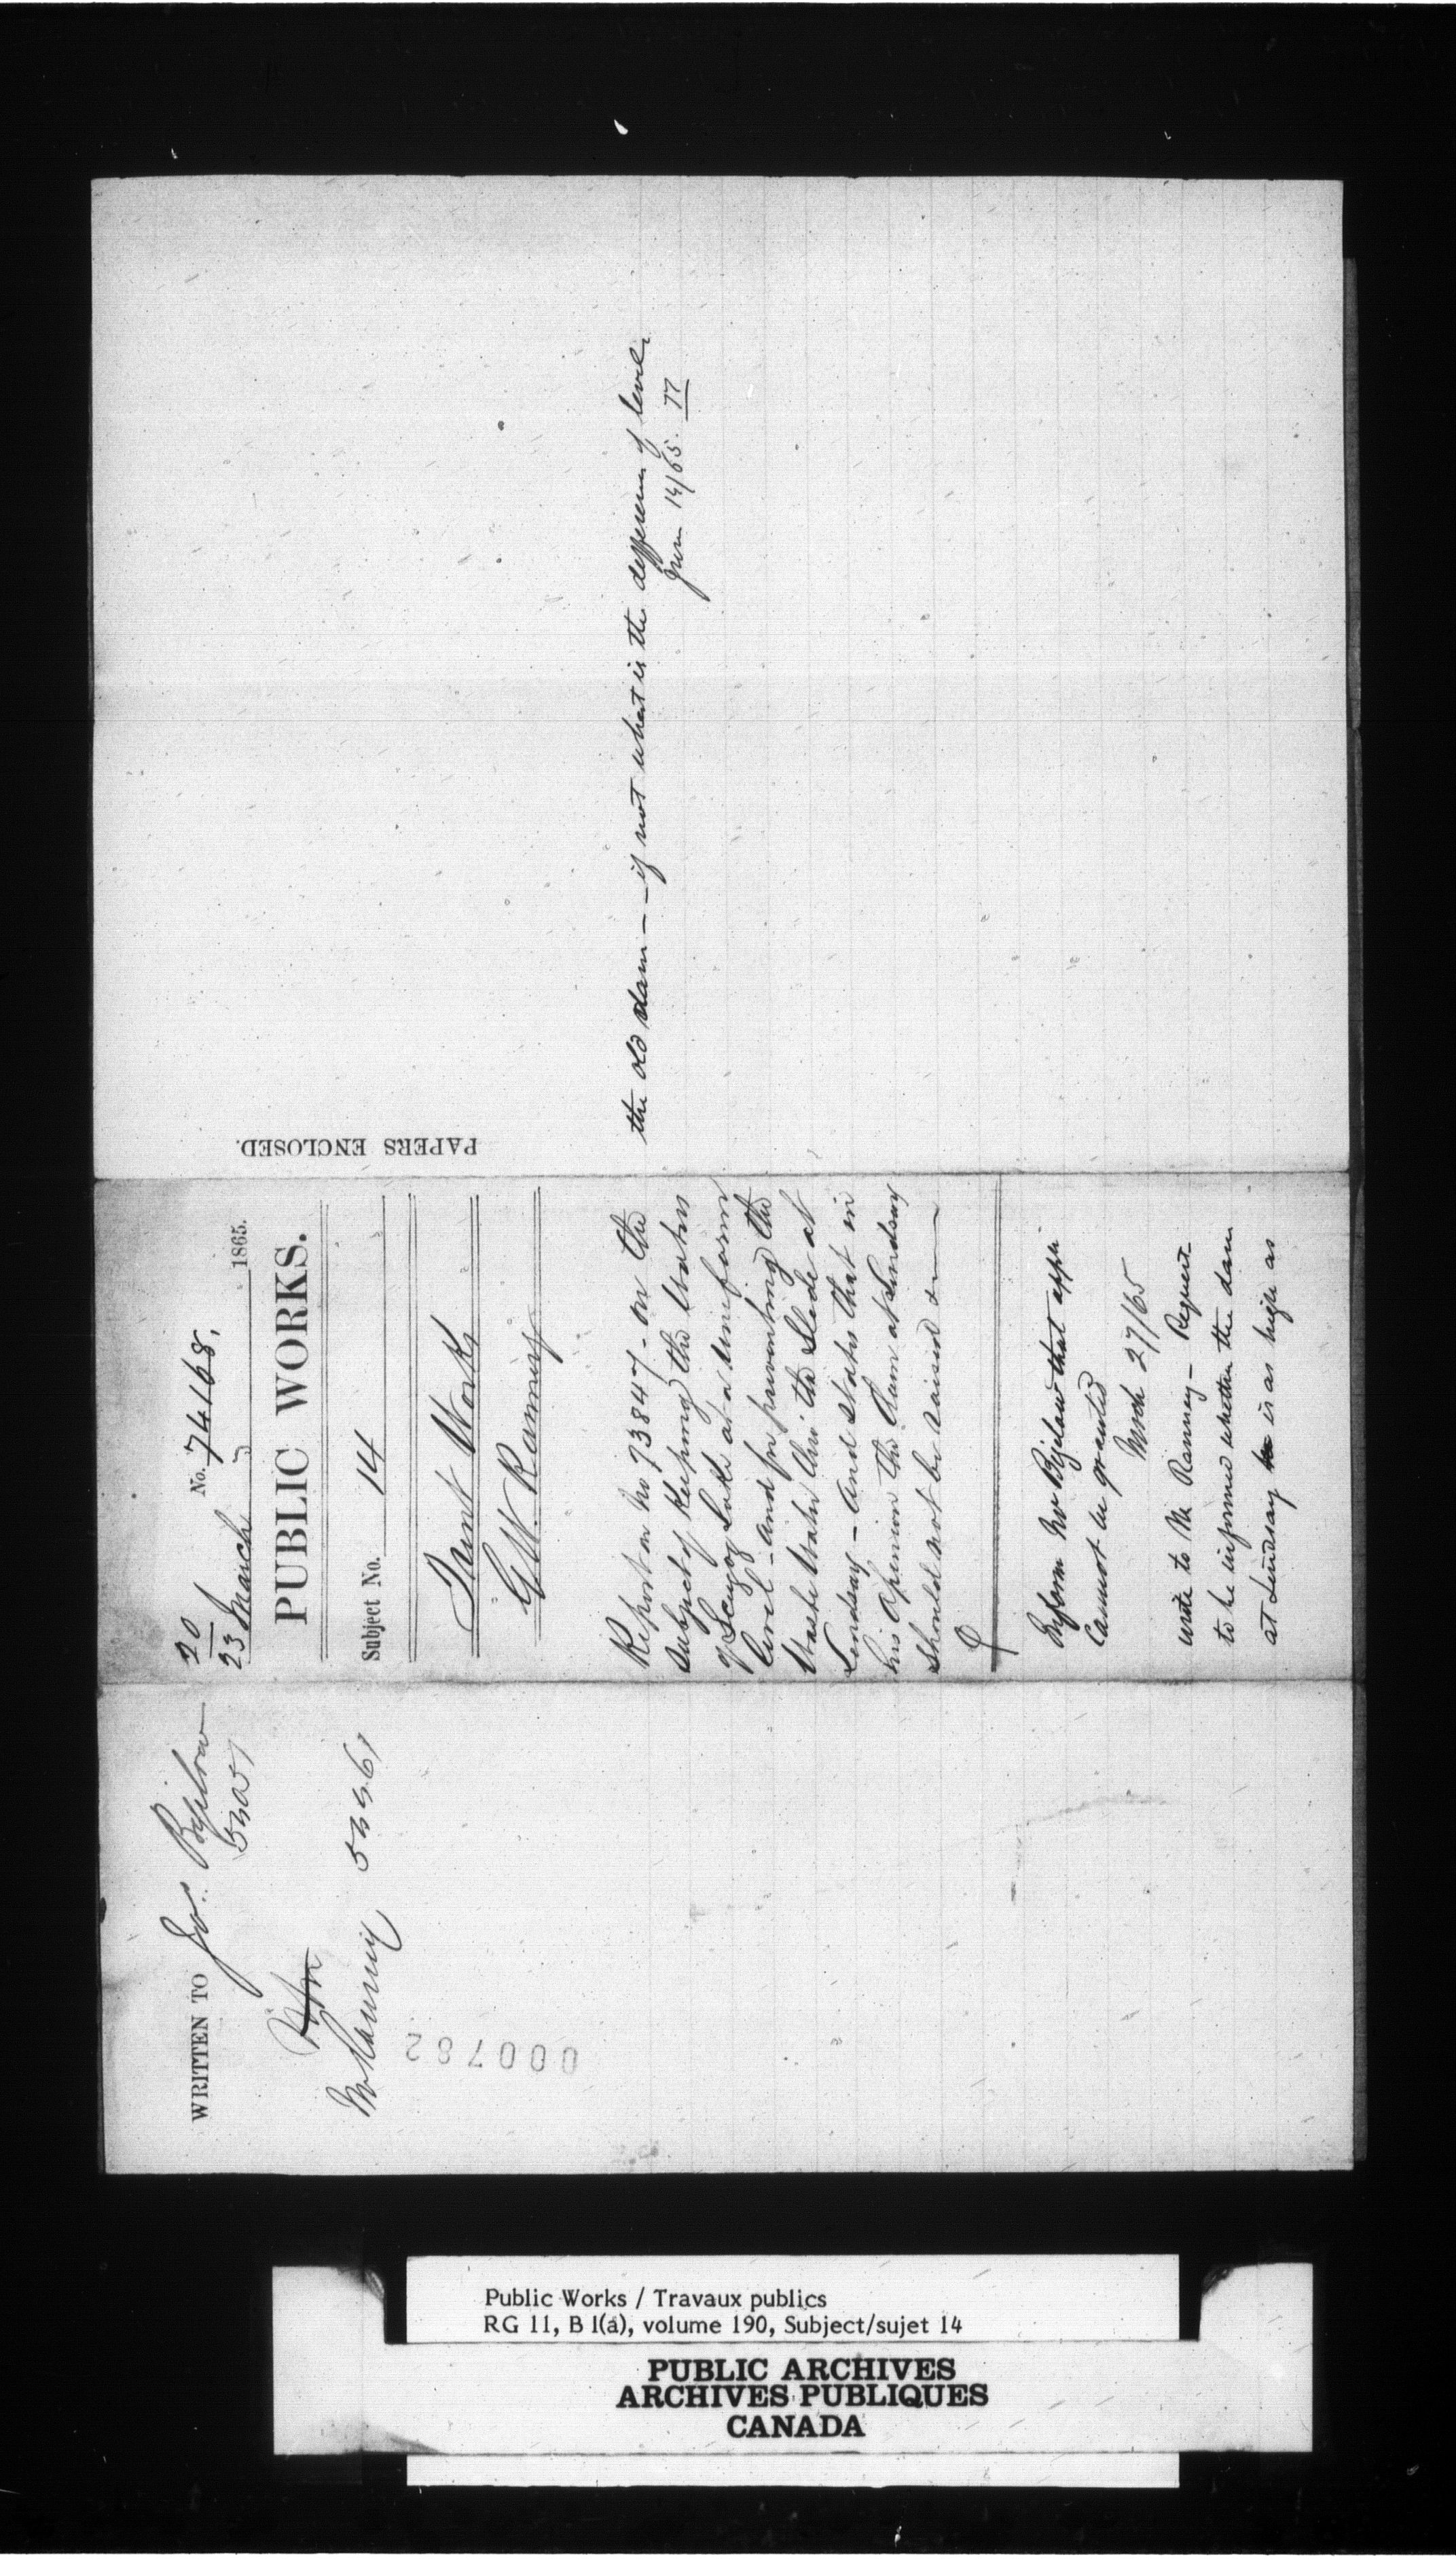 20
23 March
No. 74168,
1865.
PUBLIC WORKS.
Subject No. 14
Trent Works
G W. Ranney
Report on No 73847 - on the
subject of keeping the Waters
of Scugog Lake at a uniform
level - and for preventing the
Waste Water thro' the Slide at
Lindsay - and states that in
his opinion the Dam at Lindsay
should not be raised
Inform Mr Bigelow that appn
Cannot be granted
March 27/65
write to Mr Ranney - Request
to be informed whether the dam
at Lindsay is as high as
the old dam - - if not what is the difference of level.
June 14/65.
PAPERS ENCLOSED.
WRITTEN TO
Jos. Bigelow
Mr Ranney
000782
Public Works / Travaux publics
RG 11, B 1(a), volume 190, Subject/sujet 14
PUBLIC ARCHIVES
ARCHIVES PUBLIQUES
CANADA